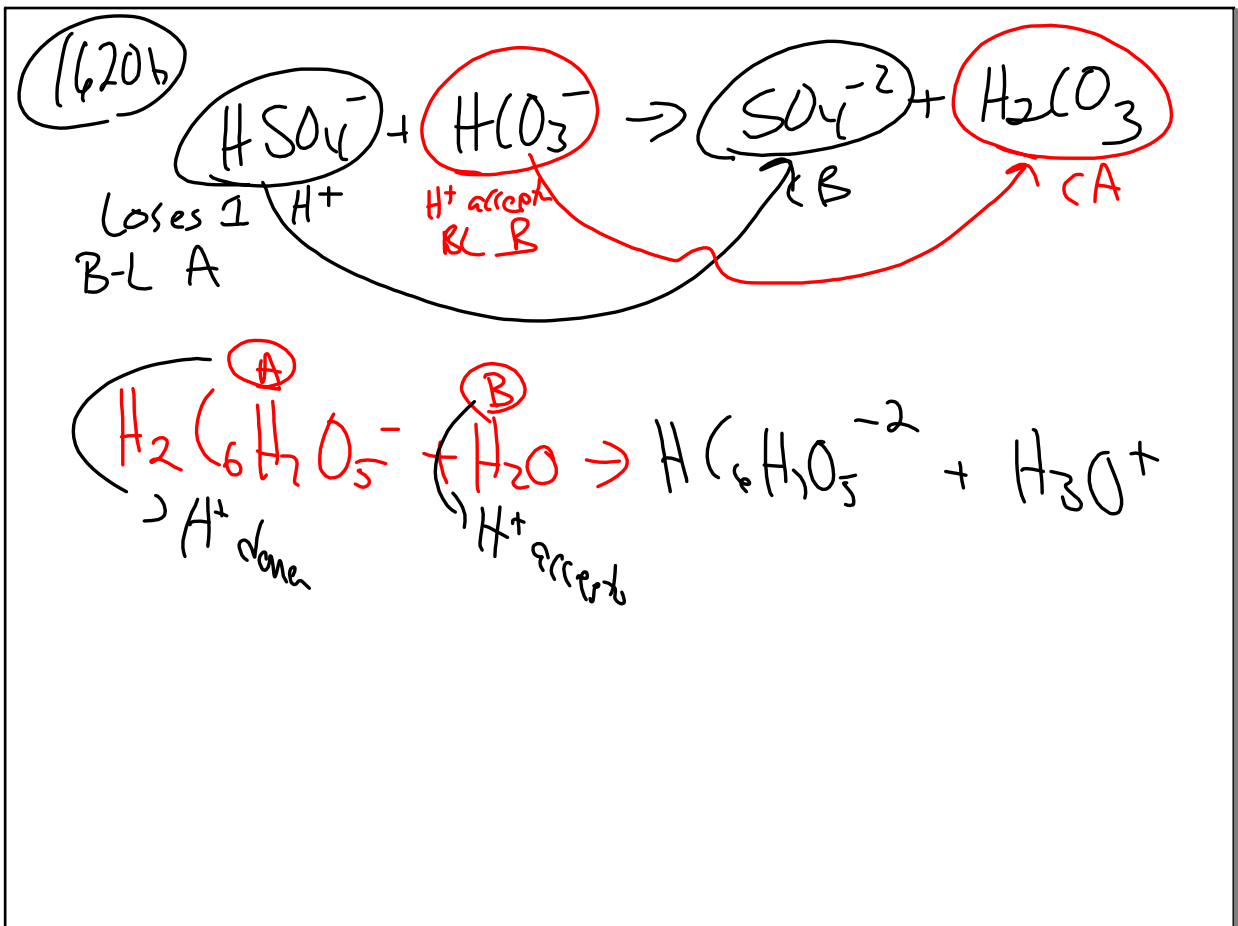 1620b
HSO4⁻ + HCO3⁻ → SO4⁻² + H2CO3
Loses 1 H⁺ H⁺ accept CB CA
B-L A BL B
A B
H2C6H7O5⁻ + H2O → HC6H7O5⁻² + H3O⁺
H⁺ H⁺ accept